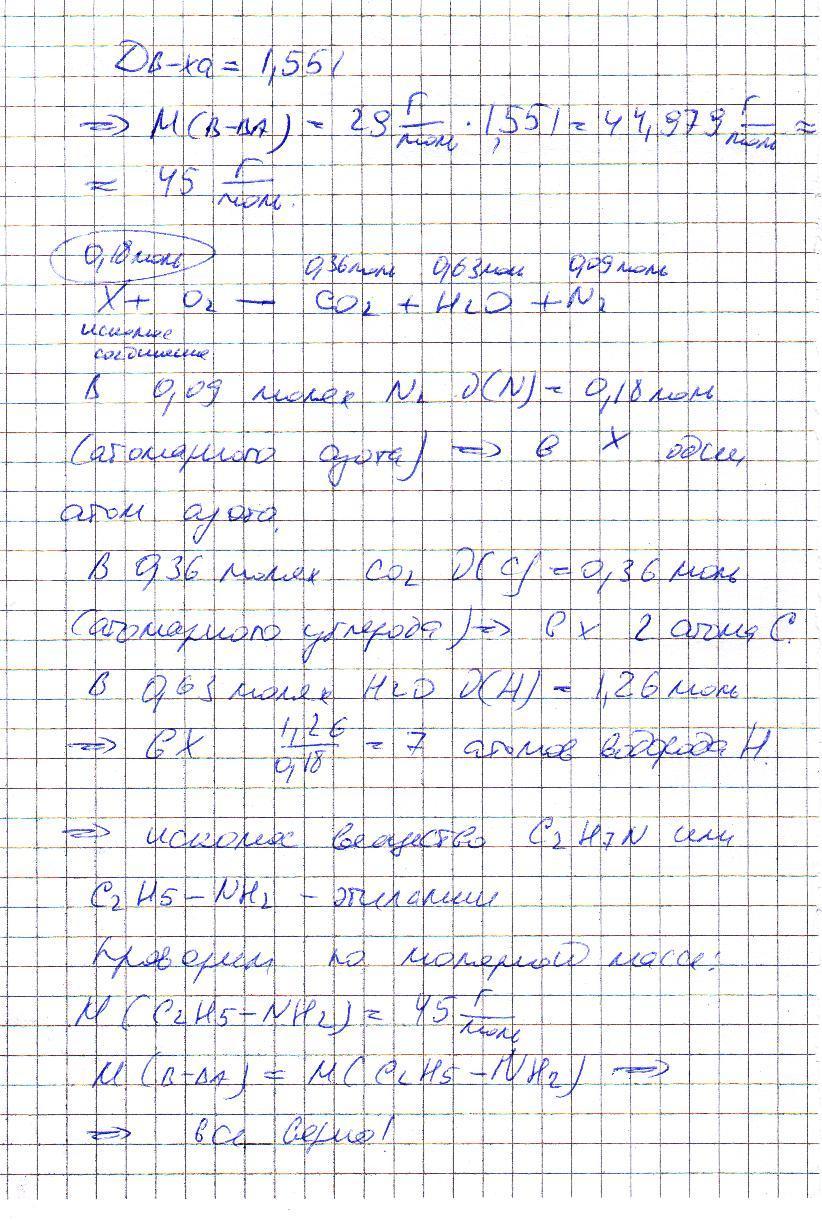 Dв-ха = 1,551
=> M(в-ва) = 29 г/моль · 1,551 = 44,979 г/моль ≈
≈ 45 г/моль.
0,18 моль 0,36 моль 0,63 моль 0,09 моль
X + O2 — CO2 + H2O + N2
искомое
соединение
В 0,09 молях N2 ∂(N) = 0,18 моль
(атомарного азота) => в X один
атом азота.
В 0,36 молях CO2 ∂(C) = 0,36 моль
(атомарного углерода) => в X 2 атома C.
В 0,63 молях H2O ∂(H) = 1,26 моль
=> в X 1,26/0,18 = 7 атомов водорода H.
=> искомое вещество C2H7N или
C2H5-NH2 - этиламин
Проверим по молярной массе:
M(C2H5-NH2) = 45 г/моль
M(в-ва) = M(C2H5-NH2) =>
=> все верно!